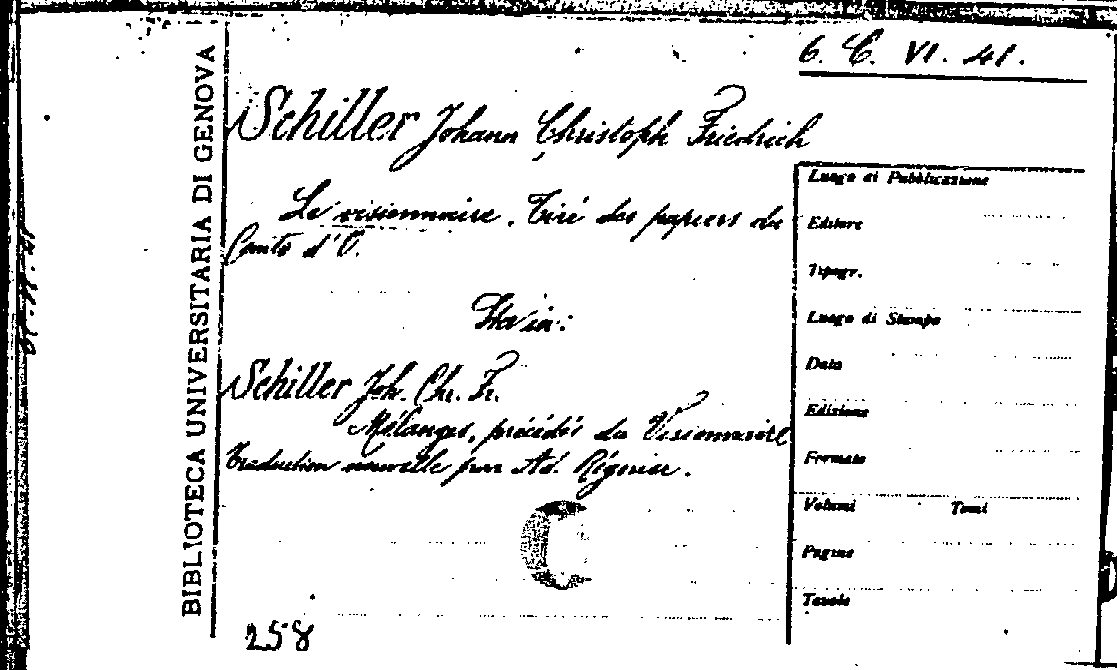 6. C. VI. 41.
BIBLIOTECA UNIVERSITARIA DI GENOVA
Schiller Johann Christoph Friedrich
Le visionnaire. Tiré des papiers du
Comte d'O.
Sta in:
Schiller Joh. Chr. Fr.
Mélanges, précédés du Visionnaire
Traduction nouvelle par Ad. Régnier.
C
258
Luogo di Pubblicazione
Editore
Tipogr.
Luogo di Stampa
Data
Edizione
Formato
Volumi Tomi
Pagine
Tavole